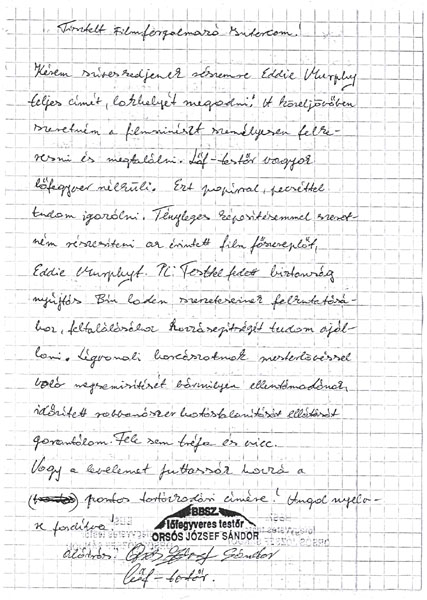 Tisztelt Filmforgalmazó Intercom!
Kérem szíveskedjenek részemre Eddie Murphy
teljes címét, lakhelyét megadni! A közeljövőben
szeretném a filmszínészt személyesen felke-
resni és megtalálni. Lőf-testőr vagyok
lőfegyver nélküli. Ezt papírral, pecséttel
tudom igazolni. Tényleges képesítésemmel szeret-
ném részesíteni az érintett film főszereplőt,
Eddie Murphyt. Pl: Testtel fedett biztonság
nyújtás Bin laden szervezeteinek felkutatásá-
hoz, feltalálásához hozzásegítségét tudom aján-
lani. Légvonali harcászatnak mesterlövéssel
való megsemmisítését bármilyen ellentámadónak,
időzített robbanószer hatástalanítását ellátását
garantálom. Fele sem tréfa és vicc.
Vagy a levelemet juttassák hozzá a
pontos tartózkodási címére! Angol nyelv-
re fordítva!
BBSZ.
lőfegyveres testőr
ORSÓS JÓZSEF SÁNDOR
aláírás: Orsós József Sándor
Lőf-testőr.